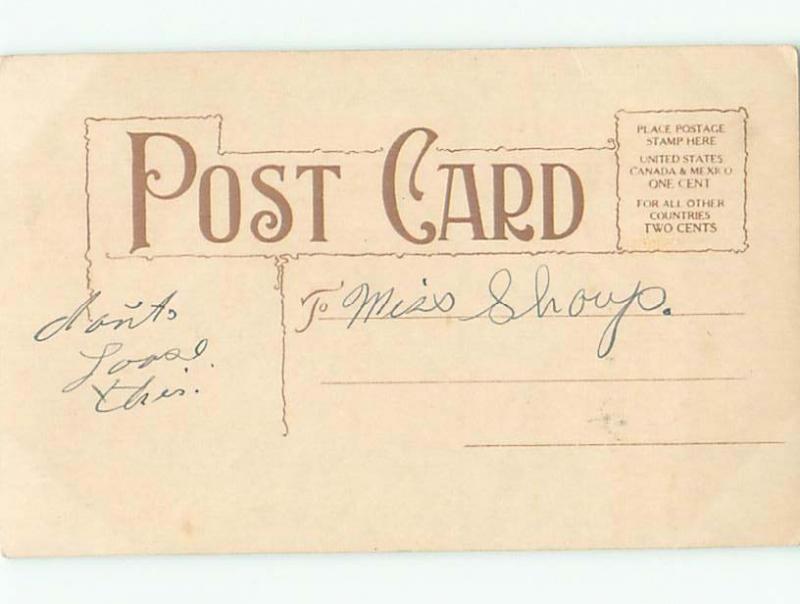 POST CARD
PLACE POSTAGE
STAMP HERE
UNITED STATES
CANADA & MEXICO
ONE CENT
FOR ALL OTHER
COUNTRIES
TWO CENTS
To Miss Shoup.
don't
Loose
this.